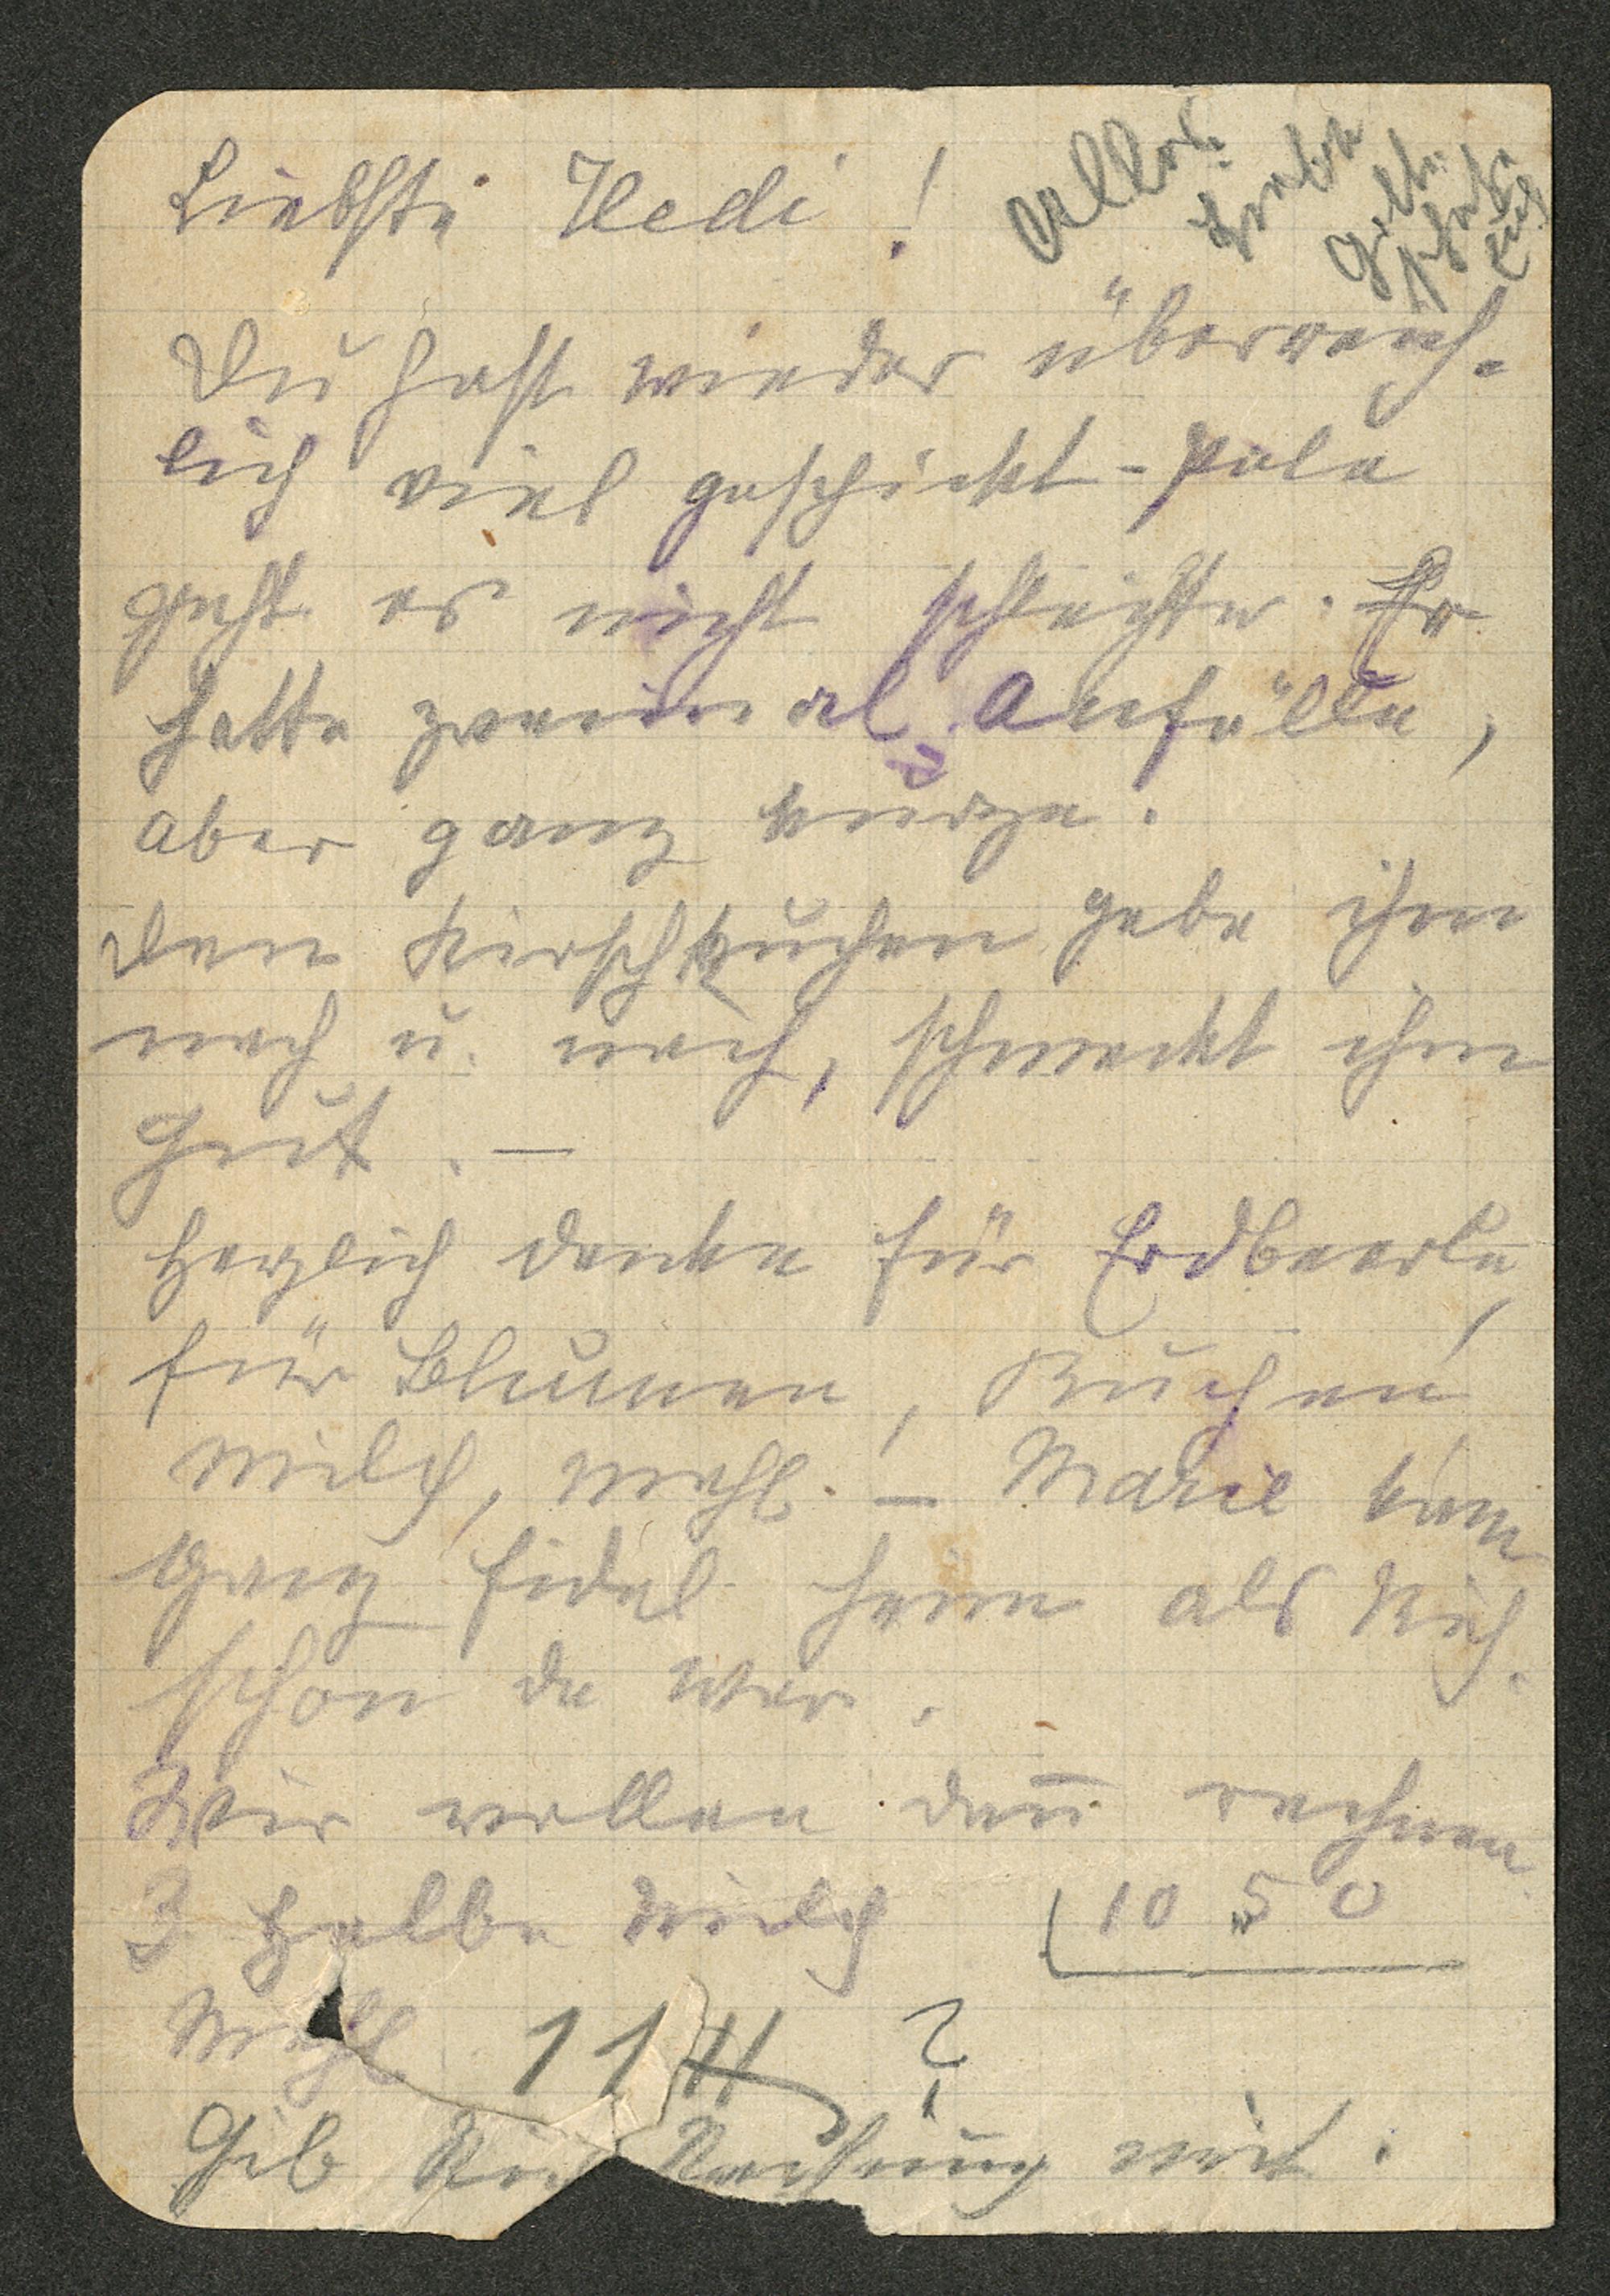 Liebste Hedi!
Du hast wieder überreich-
lich viel geschickt - Pola
geht es nicht schlechter. Er
hatte zweimal Anfälle,
aber ganz kurze.
Den Kirschkuchen gebe ihm
nach u. nach, schmeckt ihm
gut. —
Herzlich danke für Erdbeerle,
für Blumen, Kuchen,
Milch, Mehl. — Marie kam
ganz fidel heim als Rich.
schon da war.
Wir wollen dan̄ rechnen
3 Halbe Milch 10 50
Mehl 11 ?
Gib Rechnung mit.
alles